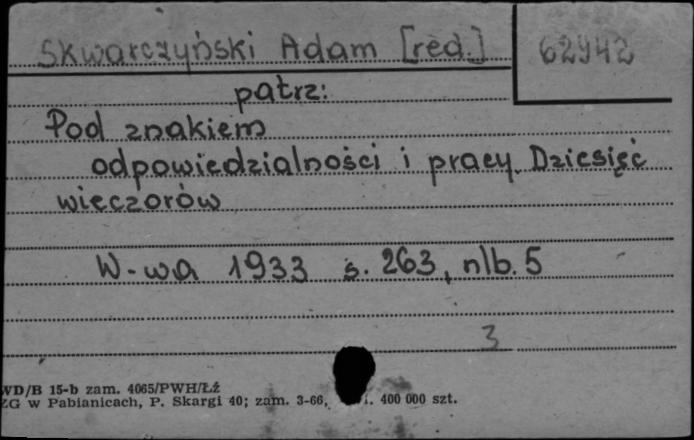 Skwarczyński Adam [red.] 62942
patrz:
Pod znakiem
odpowiedzialności i pracy. Dziesięć
wieczorów
W-wa 1933 s. 263, nlb. 5
3
WD/B 15-b zam. 4065/PWH/ŁŻ
ZG w Pabianicach, P. Skargi 40; zam. 3-66, 400 000 szt.